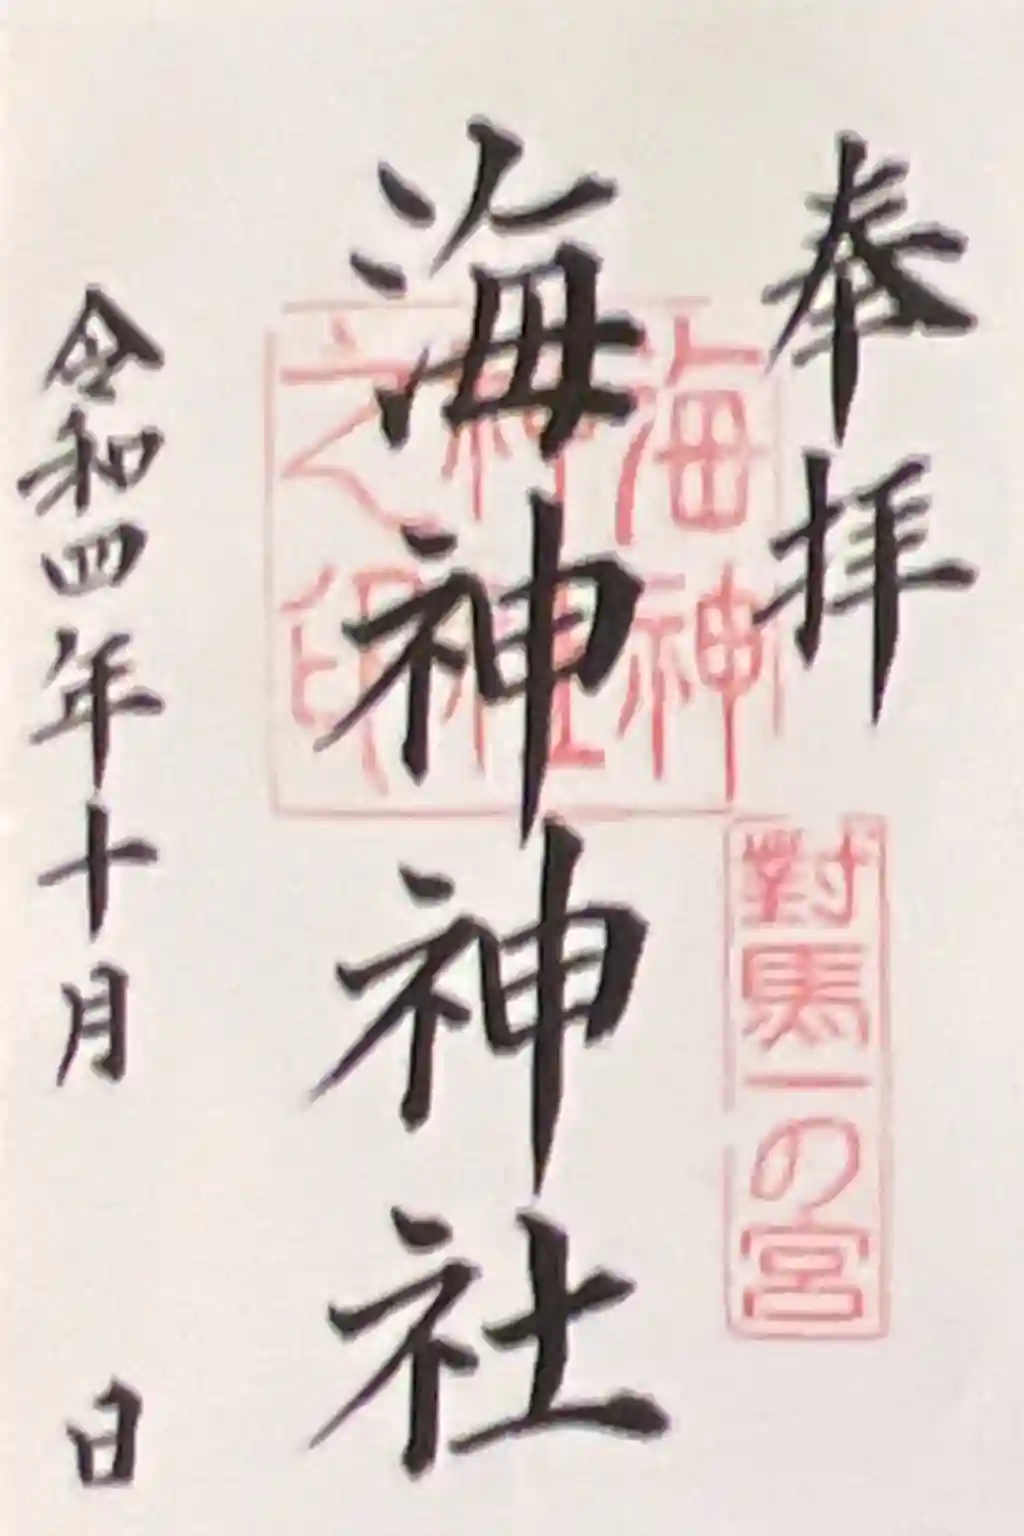 奉拝
對馬一の宮
海神神社
海神
神社
之印
令和四年十月 日